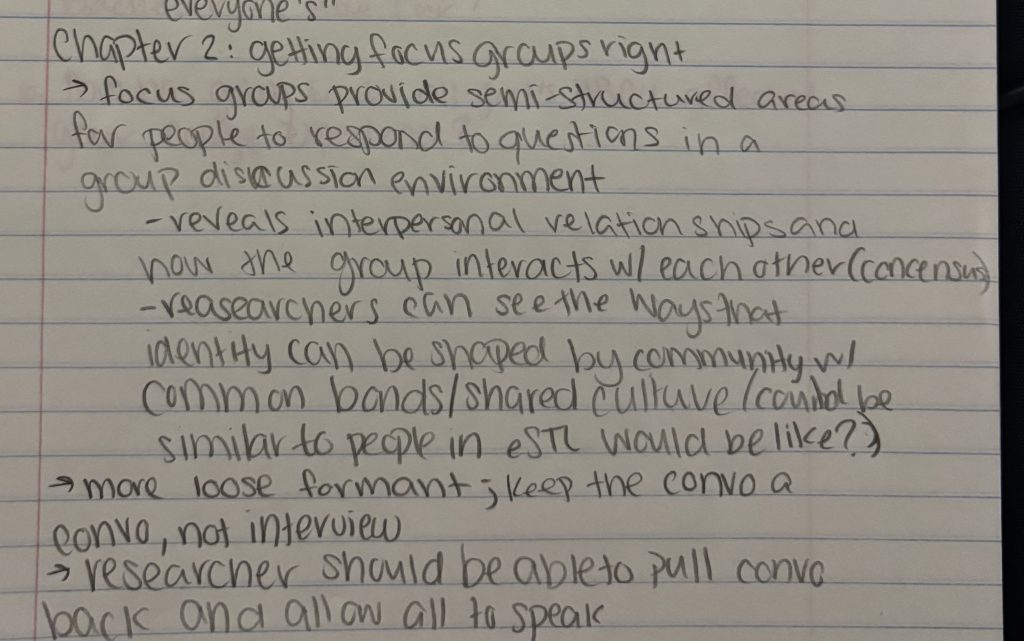 everyone's"
Chapter 2: getting focus groups right
→ focus groups provide semi-structured areas
for people to respond to questions in a
group discussion environment
- reveals interpersonal relationships and
how the group interacts w/ each other (concensus)
- reasearchers can see the ways that
identity can be shaped by community w/
common bonds/shared culture (could be
similar to people in eSTL would be like?)
→ more loose formant; keep the convo a
convo, not interview
→ researcher should be able to pull convo
back and allow all to speak